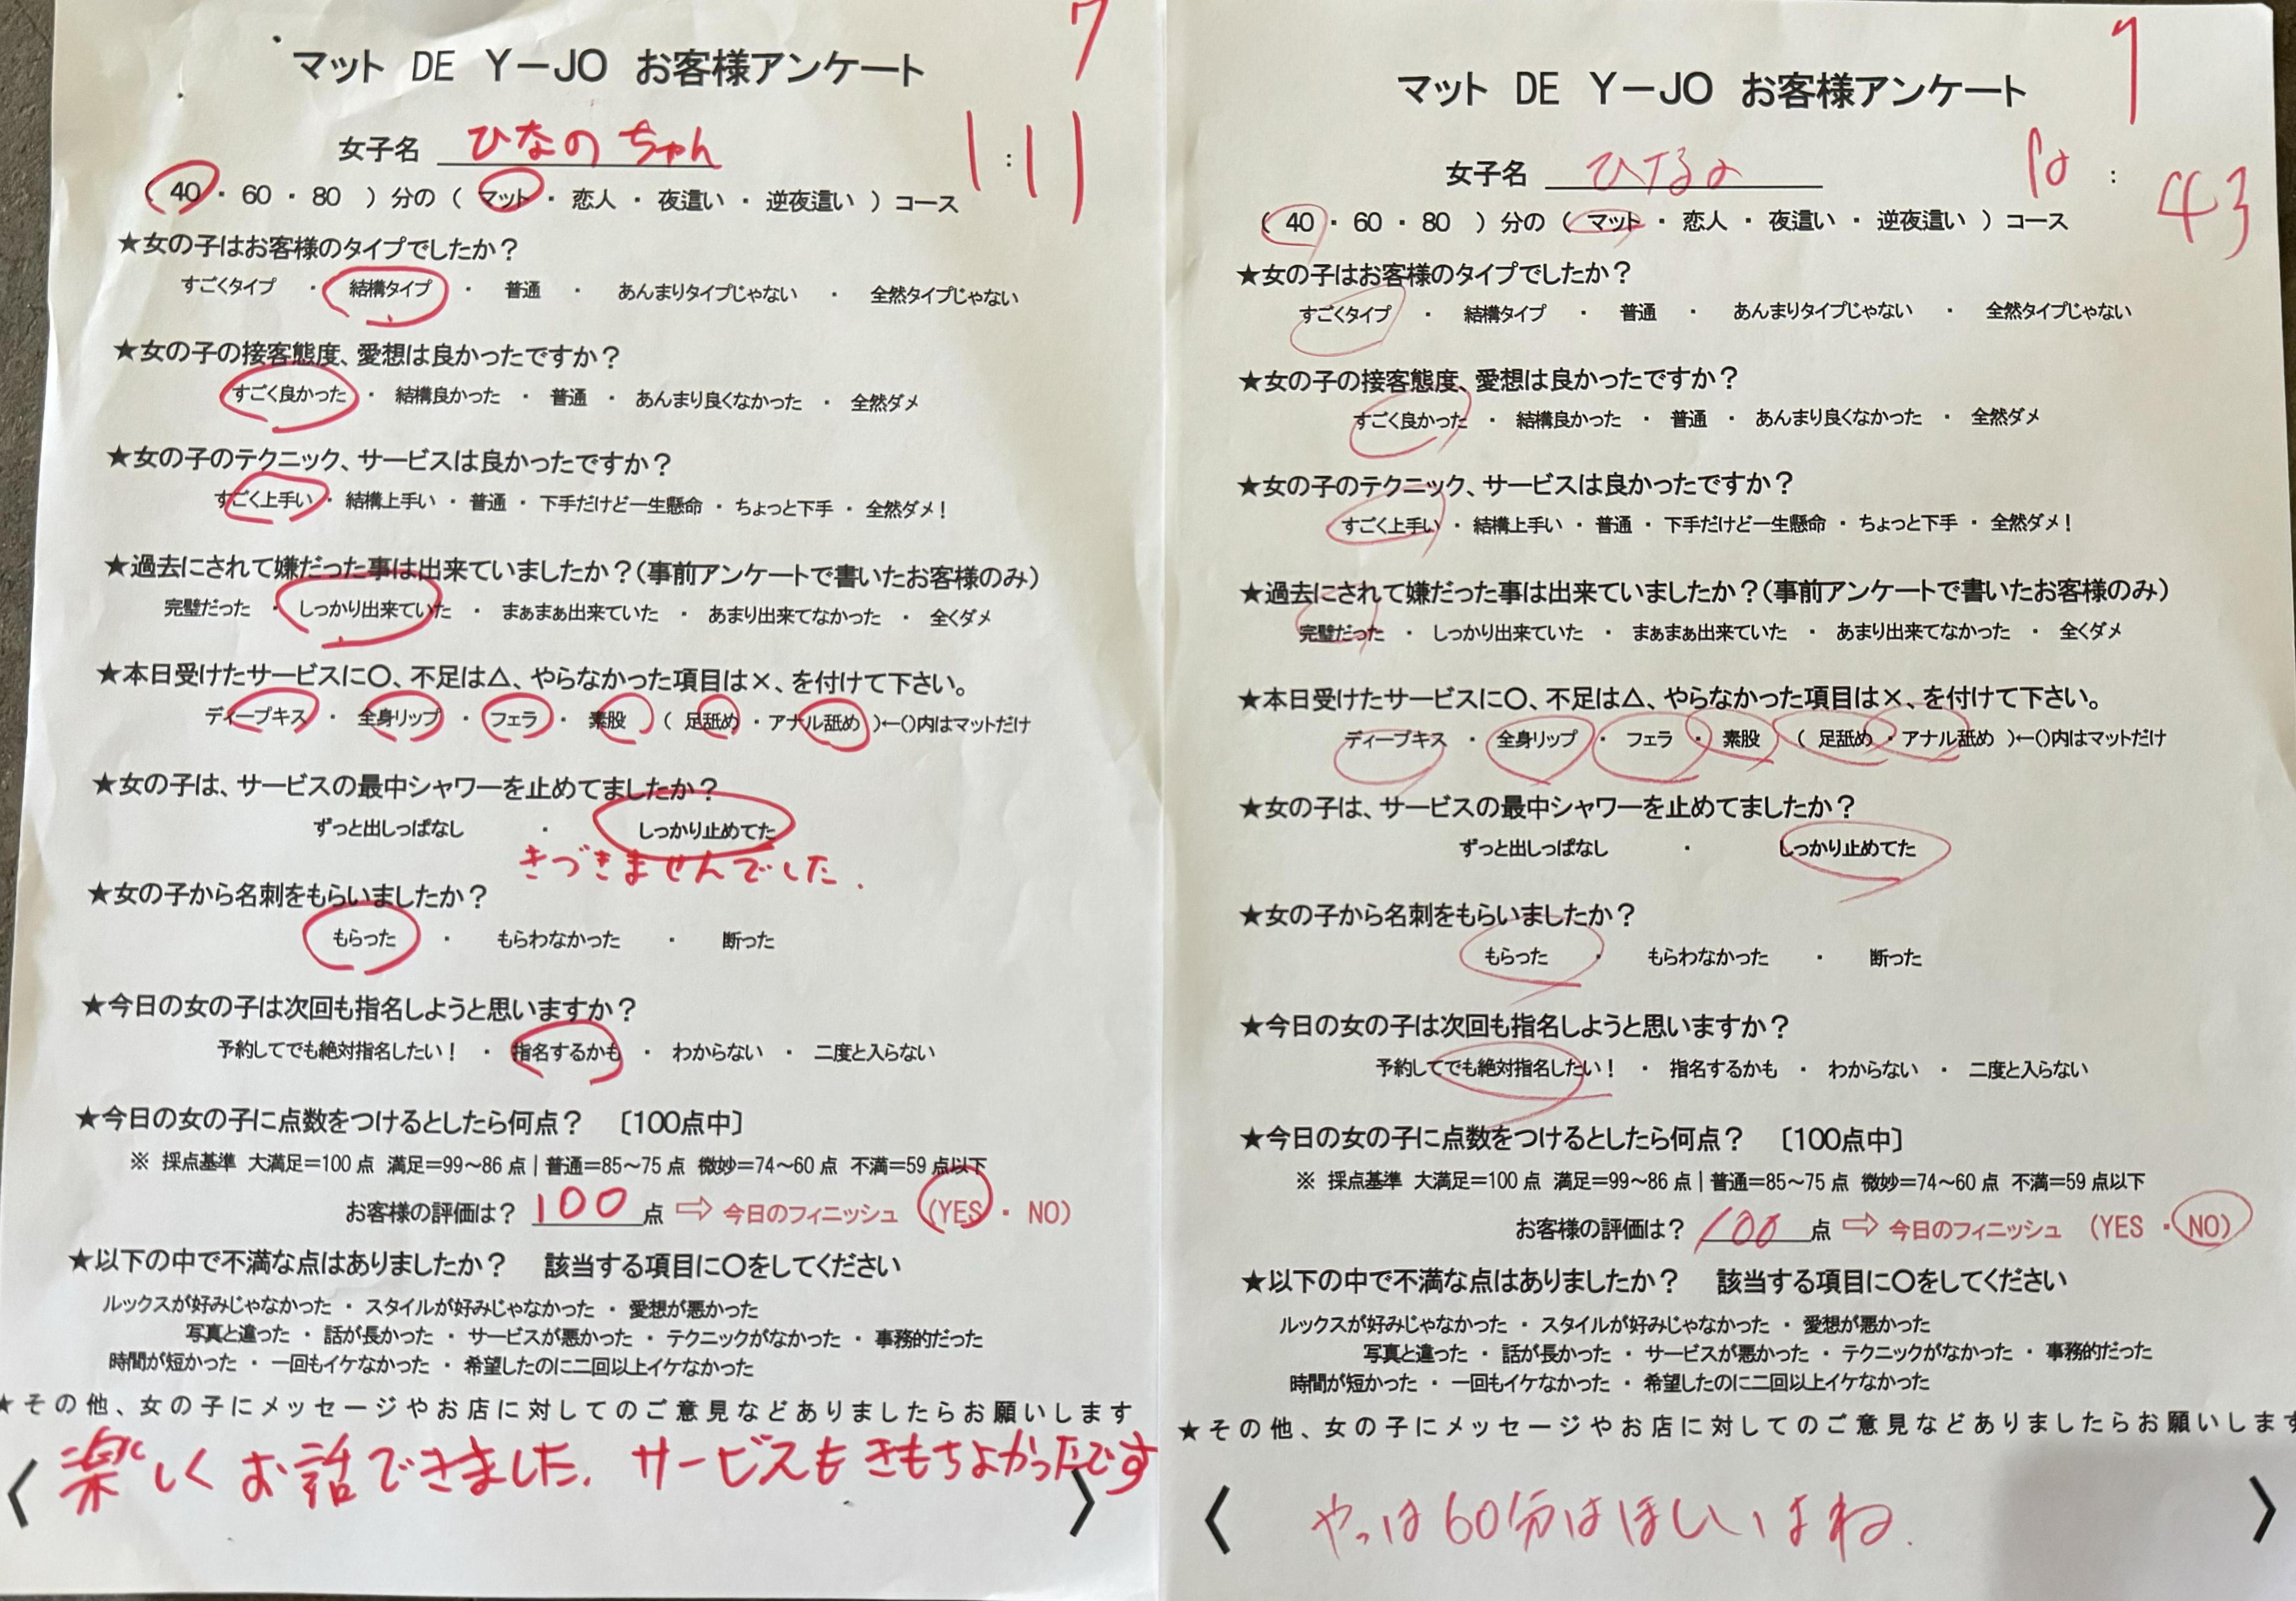 7
マット DE Y－JO お客様アンケート
1:11
女子名 ひなのちゃん
( 40 ・ 60 ・ 80 )分の( マット ・ 恋人 ・ 夜這い ・ 逆夜這い )コース
★女の子はお客様のタイプでしたか？
すごくタイプ ・ 結構タイプ ・ 普通 ・ あんまりタイプじゃない ・ 全然タイプじゃない
★女の子の接客態度、愛想は良かったですか？
すごく良かった ・ 結構良かった ・ 普通 ・ あんまり良くなかった ・ 全然ダメ
★女の子のテクニック、サービスは良かったですか？
すごく上手い ・ 結構上手い ・ 普通 ・ 下手だけど一生懸命 ・ ちょっと下手 ・ 全然ダメ！
★過去にされて嫌だった事は出来ていましたか？(事前アンケートで書いたお客様のみ)
完璧だった ・ しっかり出来ていた ・ まぁまぁ出来ていた ・ あまり出来てなかった ・ 全くダメ
★本日受けたサービスに〇、不足は△、やらなかった項目は×、を付けて下さい。
ディープキス ・ 全身リップ ・ フェラ ・ 素股 ( 足舐め ・ アナル舐め )←()内はマットだけ
★女の子は、サービスの最中シャワーを止めてましたか？
ずっと出しっぱなし ・ しっかり止めてた
きづきませんでした.
★女の子から名刺をもらいましたか？
もらった ・ もらわなかった ・ 断った
★今日の女の子は次回も指名しようと思いますか？
予約してでも絶対指名したい！ ・ 指名するかも ・ わからない ・ 二度と入らない
★今日の女の子に点数をつけるとしたら何点？ 〔100点中〕
※ 採点基準 大満足＝100点 満足＝99～86点｜普通＝85～75点 微妙＝74～60点 不満＝59点以下
お客様の評価は？ 100 点 ⇨ 今日のフィニッシュ (YES ・ NO)
★以下の中で不満な点はありましたか？ 該当する項目に〇をしてください
ルックスが好みじゃなかった ・ スタイルが好みじゃなかった ・ 愛想が悪かった
写真と違った ・ 話が長かった ・ サービスが悪かった ・ テクニックがなかった ・ 事務的だった
時間が短かった ・ 一回もイケなかった ・ 希望したのに二回以上イケなかった
★その他、女の子にメッセージやお店に対してのご意見などありましたらお願いします
〈 楽しくお話できました. サービスもきもちよかったです 〉
マット DE Y－JO お客様アンケート
女子名
43
( 40 ・ 60 ・ 80 )分の( マット ・ 恋人 ・ 夜這い ・ 逆夜這い )コース
★女の子はお客様のタイプでしたか？
すごくタイプ ・ 結構タイプ ・ 普通 ・ あんまりタイプじゃない ・ 全然タイプじゃない
★女の子の接客態度、愛想は良かったですか？
すごく良かった ・ 結構良かった ・ 普通 ・ あんまり良くなかった ・ 全然ダメ
★女の子のテクニック、サービスは良かったですか？
すごく上手い ・ 結構上手い ・ 普通 ・ 下手だけど一生懸命 ・ ちょっと下手 ・ 全然ダメ！
★過去にされて嫌だった事は出来ていましたか？(事前アンケートで書いたお客様のみ)
完璧だった ・ しっかり出来ていた ・ まぁまぁ出来ていた ・ あまり出来てなかった ・ 全くダメ
★本日受けたサービスに〇、不足は△、やらなかった項目は×、を付けて下さい。
ディープキス ・ 全身リップ ・ フェラ ・ 素股 ( 足舐め ・ アナル舐め )←()内はマットだけ
★女の子は、サービスの最中シャワーを止めてましたか？
ずっと出しっぱなし ・ しっかり止めてた
★女の子から名刺をもらいましたか？
もらった ・ もらわなかった ・ 断った
★今日の女の子は次回も指名しようと思いますか？
予約してでも絶対指名したい！ ・ 指名するかも ・ わからない ・ 二度と入らない
★今日の女の子に点数をつけるとしたら何点？ 〔100点中〕
※ 採点基準 大満足＝100点 満足＝99～86点｜普通＝85～75点 微妙＝74～60点 不満＝59点以下
お客様の評価は？ 100 点 ⇨ 今日のフィニッシュ (YES ・ NO)
★以下の中で不満な点はありましたか？ 該当する項目に〇をしてください
ルックスが好みじゃなかった ・ スタイルが好みじゃなかった ・ 愛想が悪かった
写真と違った ・ 話が長かった ・ サービスが悪かった ・ テクニックがなかった ・ 事務的だった
時間が短かった ・ 一回もイケなかった ・ 希望したのに二回以上イケなかった
★その他、女の子にメッセージやお店に対してのご意見などありましたらお願いします
〈 やっは60分はほしいよね. 〉